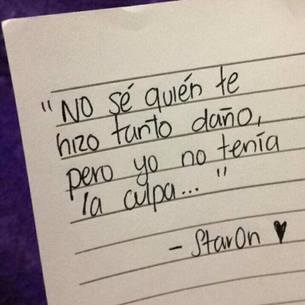 "No sé quién te
hizo tanto daño,
pero yo no tenía
la culpa..."
- StarOn ♥